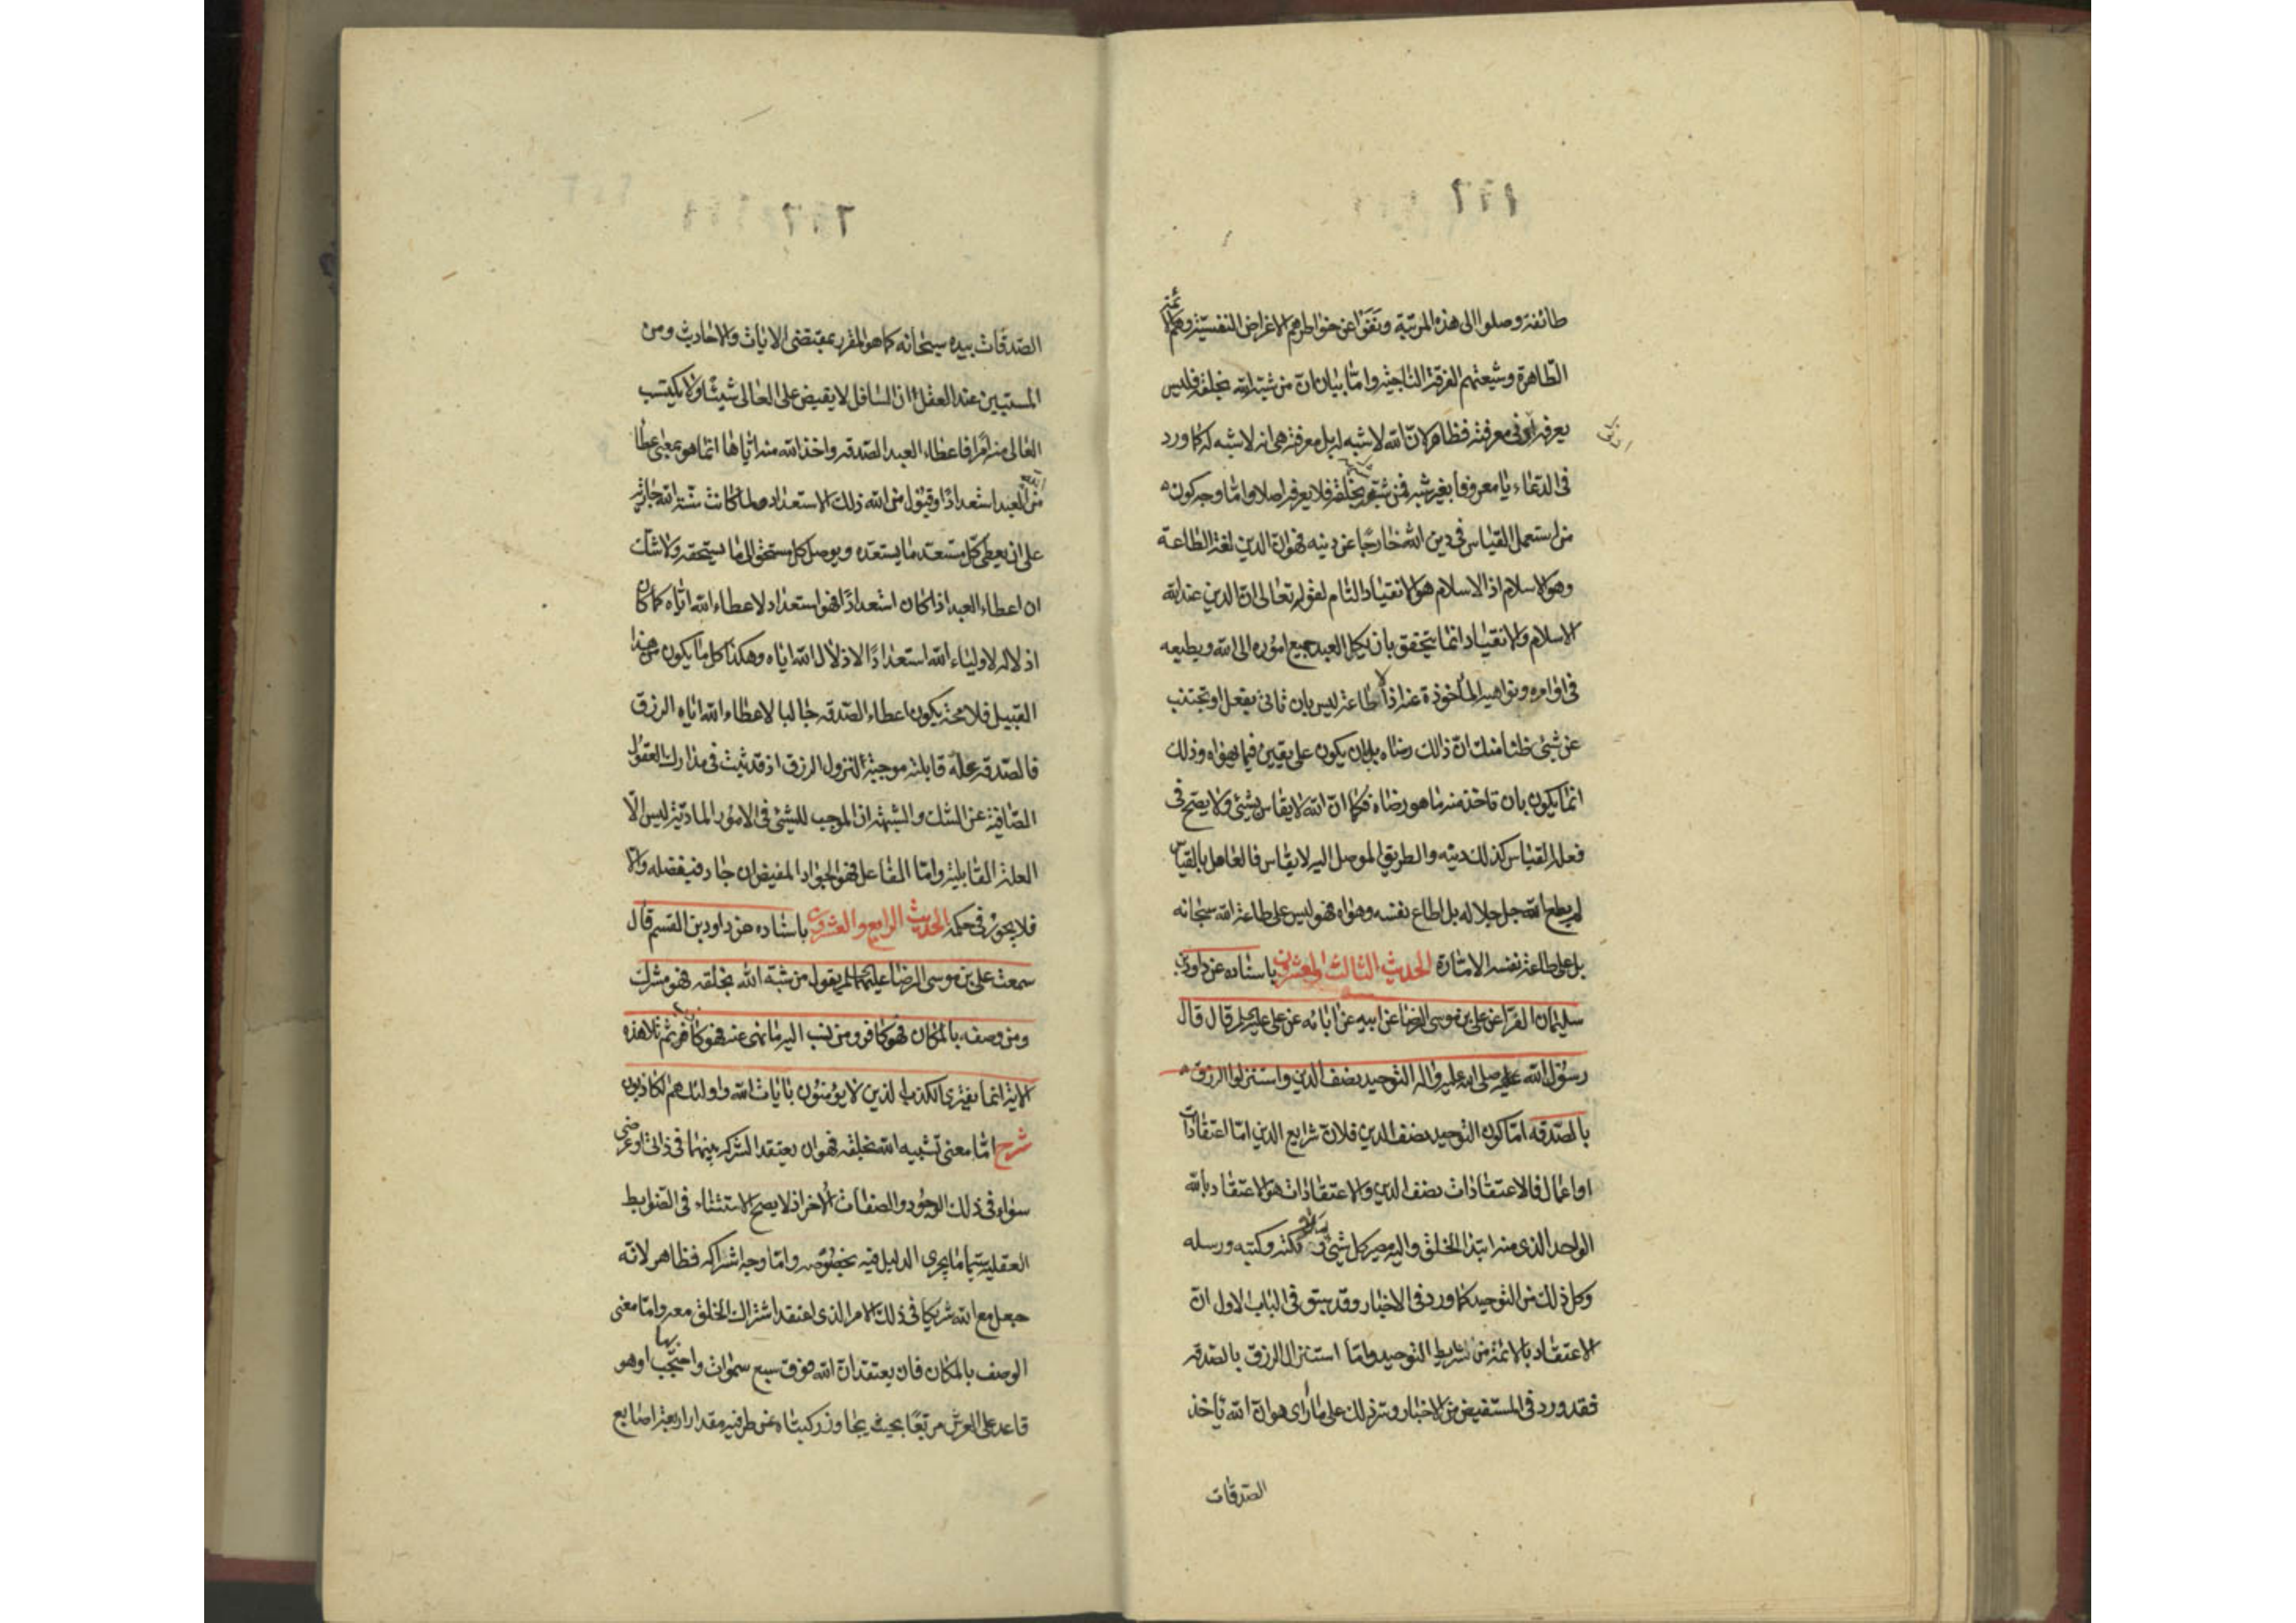 طائفة وصلوا الى هذه المرتبة ونَفَوْا عن خواطرهم الاغراض النفسيّة وهم الائمّة
الطّاهرة وشيعتهم الفرقة الناجية وامّا بيان انّ من شبّه الله بخلقه فليس
يعرفه اى فى معرفته فظاهر لانّ الله لا شبه له بل معرفته هى انه لا شبه له كما ورد
فى الدعاء يا معروفا بغير شبه فمن شبّهه بخلقه فلا يعرفه اصلا وامّا وجه كون
من استعمل القياس فى دين الله خارجًا عن دينه فهو انّ الدين لغة الطاعة
وهو الاسلام اذ الاسلام هو الانقياد التام لقوله تعالى انّ الدين عند الله
الاسلام والانقياد انما يتحقق بان يكل العبد جميع اموره الى الله ويطيعه
فى اوامره ونواهيه المأخوذة عنه اذ لا طاعة ليس بان تاتى بفعل او تجتنب
عن شئ ظنا منك انّ ذالك رضاه بل بان يكون على يقين فيما يهواه وذلك
انما يكون بان تاخذ منه ما هو رضاه فكما انّ الله لا يقاس بشئ ولا يصحّ فى
فعله القياس كذلك دينه والطريق الموصل اليه لا يقاس فالعامل بالقياس
لم يطع الله جل جلاله بل اطاع نفسه وهواه فهو ليس على طاعة الله سبحانه
بل على طاعة نفسه الامّارة الحديث الثالث والعشرون باسناده عن داود بن
سليمان الفرّا عن على بن موسى الرضا عن ابيه عن ابائه عن على عليه السلم قال قال
رسول الله صلى الله عليه واله التوحيد نصف الدين واستنزلوا الرزق
بالصّدقه امّا كون التوحيد نصف الدين فلانّ شرايع الدين امّا اعتقادات
او اعمال فالاعتقادات نصف الدين والاعتقادات هو الاعتقاد بالله
الواحد الذى منه ابتدا الخلق واليه مصير كل شئ وملائكته وكتبه ورسله
وكل ذلك من التوحيد كما ورد فى الاخبار وقد سبق فى الباب الاول انّ
الاعتقاد بالائمّة من شرايط التوحيد وامّا استنزال الرزق بالصدقه
فقد ورد فى المستفيض من الاخبار وسرّ ذلك على ما أرى هو انّ الله ياخذ
الصّدقات
الصّدقات بيده سبحانه كما هو المقرر بمقتضى الايات والاحاديث ومن
المستبين عند العقل انّ السافل لا يفيض على العالى شيئًا ولا يكتسب
العالى منه امرًا فاعطاء العبد الصّدقه واخذ الله منه ايّاها انّما هو بمعنى عطا
من العبد استعدادًا وقبول من الله ذلك الاستعداد ولما كانت سنّة الله جارية
على ان يعطى كل مستعد ما يستعدّه ويوصل كل مستحق الى ما يستحقه ولا شكّ
ان اعطاء العبد اذا كان استعدادًا فهو استعداد لاعطاء الله ايّاه كما كان
اذلاله لاولياء الله استعدادًا لاذلال الله اياه وهكذا كل ما يكون من هذا
القبيل فلا محة يكون اعطاء الصّدقه جالبا لاعطاء الله ايّاه الرزق
فالصّدقه علّة قابلية موجبة لنزول الرزق اذ قد ثبت فى مدارك العقول
الصّافية عن الشك والشبهة انّ الموجب للشئ فى الامور المادّية ليس الّا
العلة القابلية وامّا الفاعل فهو الجواد المفيض ان جاد فبفضله والا
فلا يجوز فى حكمه الحديث الرابع والعشرون باسناده عن داود بن القسم قال
سمعت على بن موسى الرضا عليهما السلم يقول من شبّه الله بخلقه فهو مشرك
ومن وصفه بالمكان فهو كافر ومن نسب اليه ما نهى عنه فهو كاذب ثم تلا هذه
الاية انما يفترى الكذب الذين لا يؤمنون بايات الله واولئك هم الكاذبون
شرح امّا معنى تشبيه الله بخلقه فهو ان يعتقد الشركة بينهما فى ذاتى او عرضى
سواء فى ذلك الوجود والصفات الاخر اذ لا يصح الاستثناء فى الضوابط
العقلية سيّما ما يجرى الدليل فيه بخصوصه وامّا وجه اشراكه فظاهر لانّه
جعل مع الله شريكا فى ذلك الامر الذى اعتقد اشتراك الخلق معه وامّا معنى
الوصف بالمكان فان يعتقد انّ الله فوق سبع سموات واحتجب بها او هو
قاعد على العرش مربّعًا بحيث يجاوز ركبتاه عن طرفيه مقدار اربعة اصابع